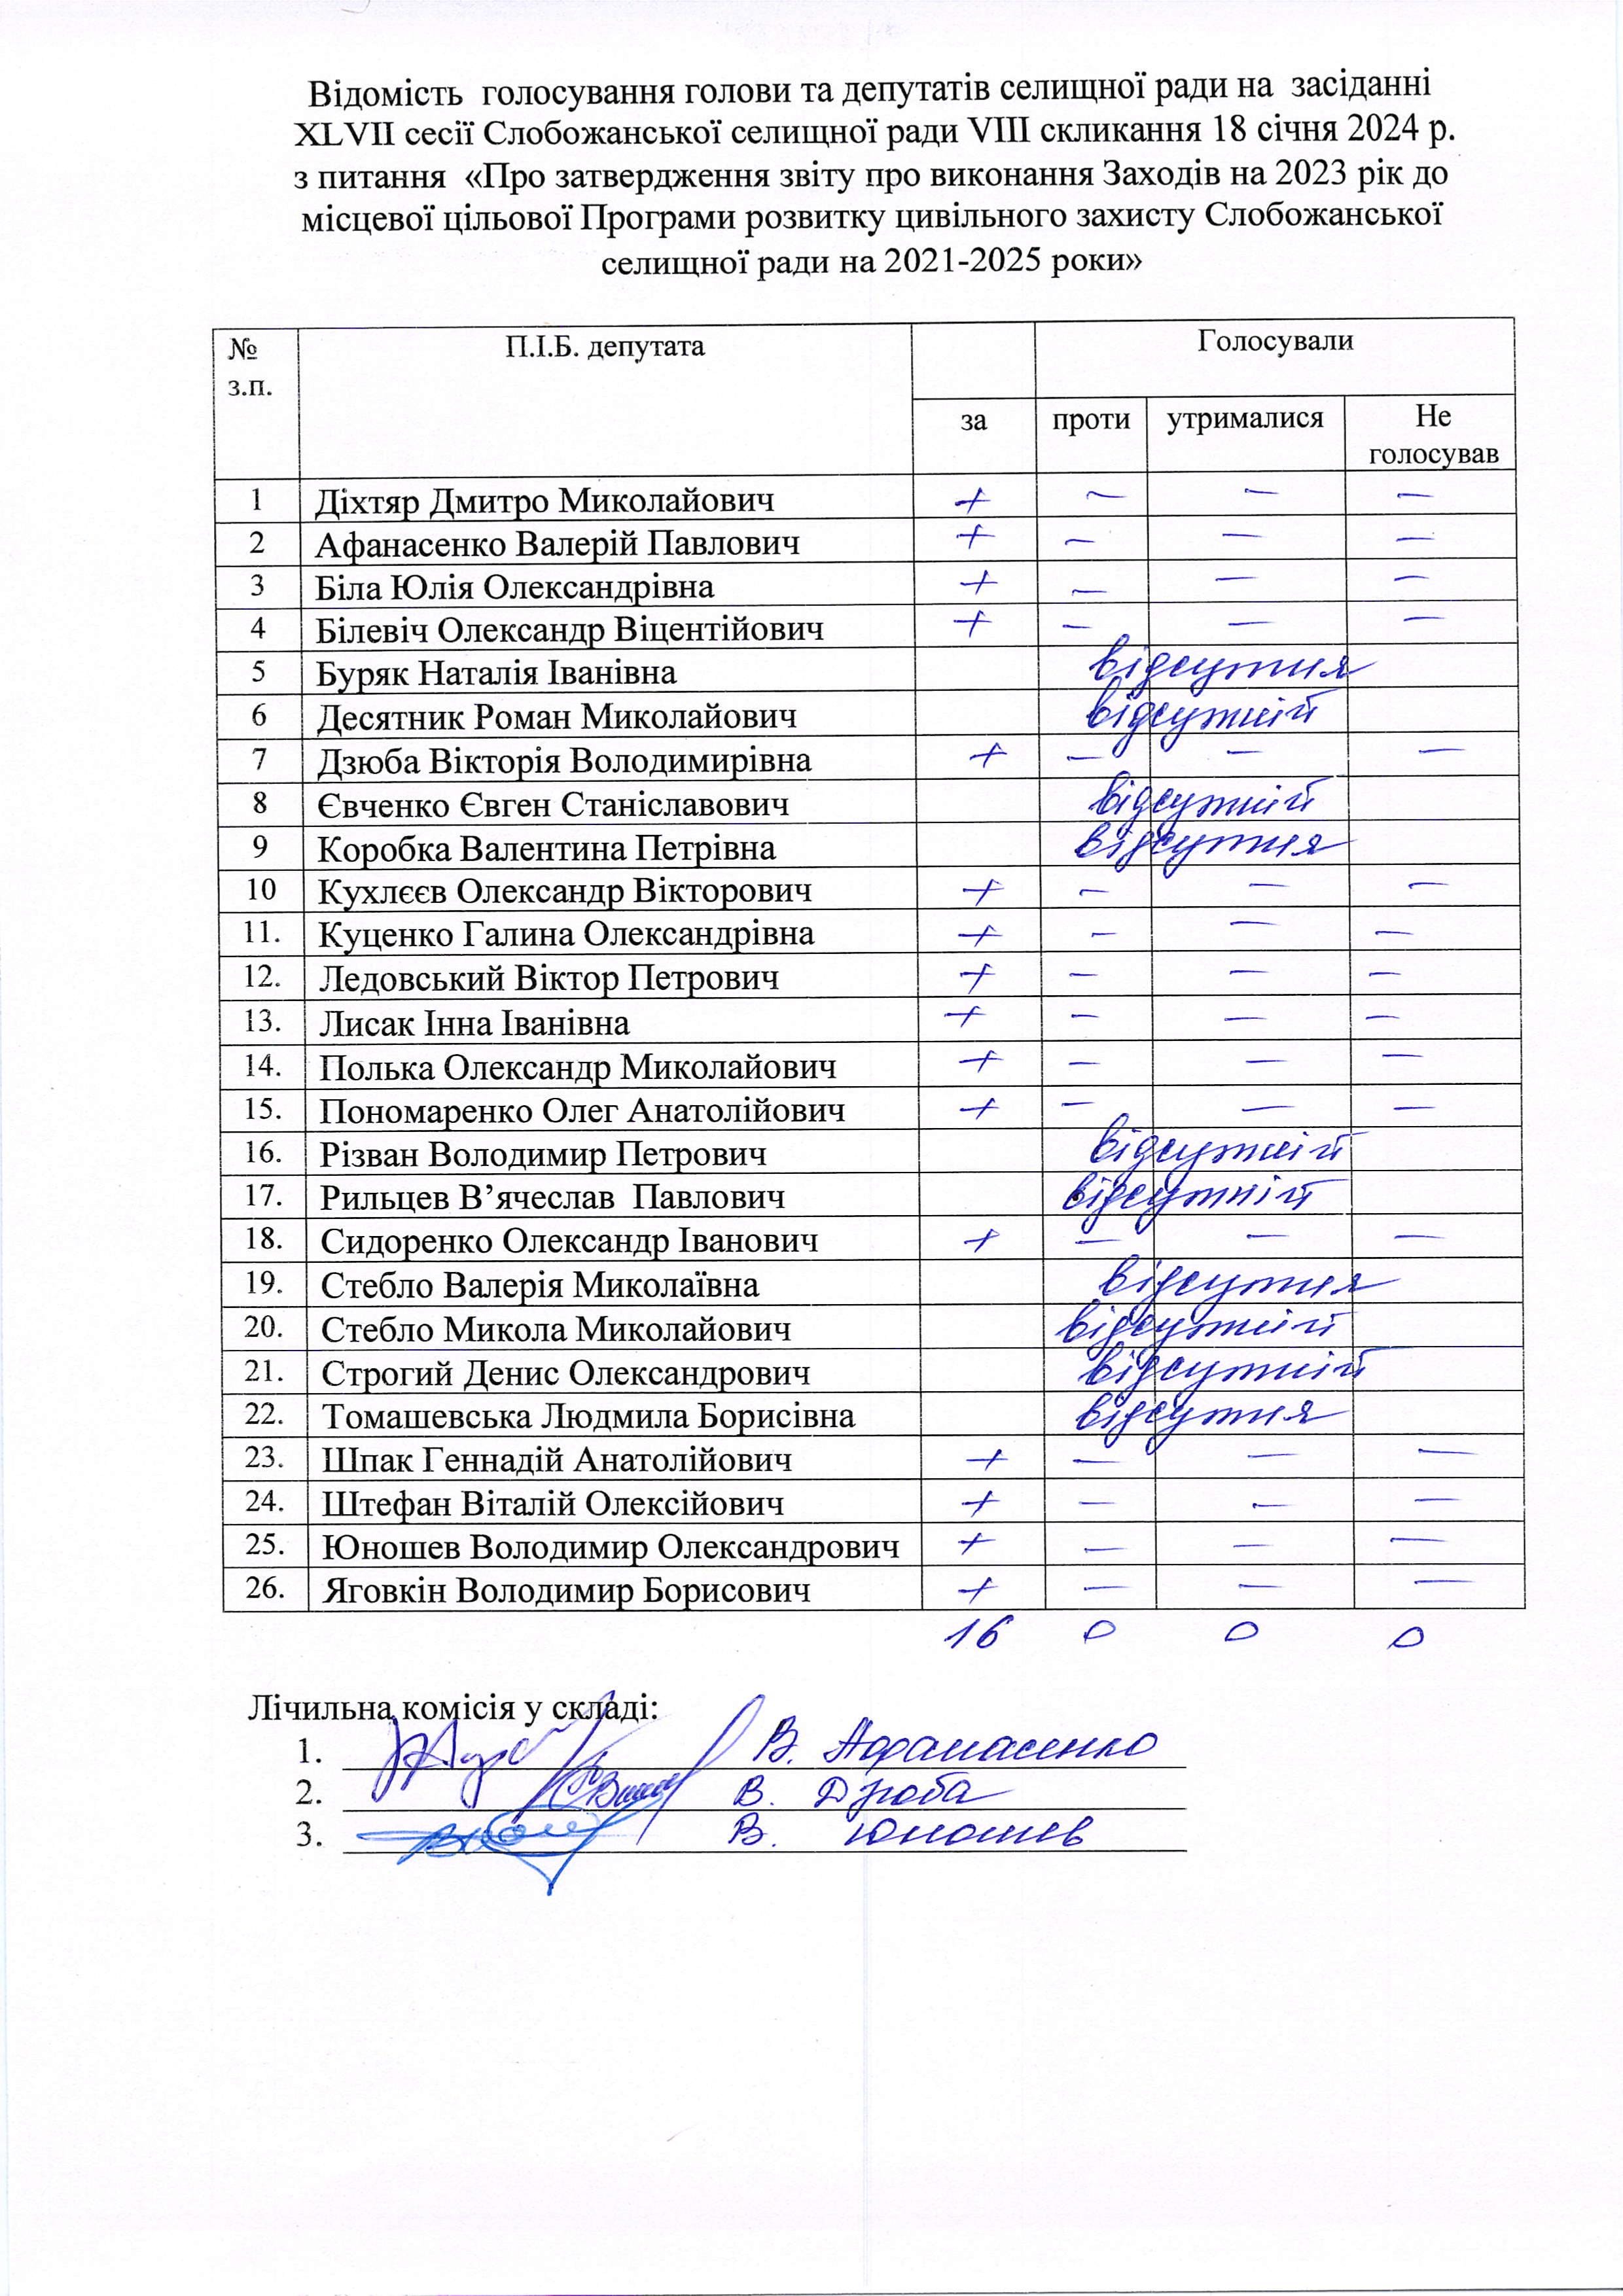 Відомість голосування голови та депутатів селищної ради на засіданні
XLVII сесії Слобожанської селищної ради VIII скликання 18 січня 2024 р.
з питання «Про затвердження звіту про виконання Заходів на 2023 рік до
місцевої цільової Програми розвитку цивільного захисту Слобожанської
селищної ради на 2021-2025 роки»
№ з.п. П.І.Б. депутата Голосували
за проти утрималися Не голосував
1 Діхтяр Дмитро Миколайович + — — —
2 Афанасенко Валерій Павлович + — — —
3 Біла Юлія Олександрівна + — — —
4 Білевіч Олександр Віцентійович + — — —
5 Буряк Наталія Іванівна відсутня
6 Десятник Роман Миколайович відсутній
7 Дзюба Вікторія Володимирівна + — — —
8 Євченко Євген Станіславович відсутній
9 Коробка Валентина Петрівна відсутня
10 Кухлєєв Олександр Вікторович + — — —
11. Куценко Галина Олександрівна + — — —
12. Ледовський Віктор Петрович + — — —
13. Лисак Інна Іванівна + — — —
14. Полька Олександр Миколайович + — — —
15. Пономаренко Олег Анатолійович + — — —
16. Різван Володимир Петрович відсутній
17. Рильцев В’ячеслав Павлович відсутній
18. Сидоренко Олександр Іванович + — — —
19. Стебло Валерія Миколаївна відсутня
20. Стебло Микола Миколайович відсутній
21. Строгий Денис Олександрович відсутній
22. Томашевська Людмила Борисівна відсутня
23. Шпак Геннадій Анатолійович + — — —
24. Штефан Віталій Олексійович + — — —
25. Юношев Володимир Олександрович + — — —
26. Яговкін Володимир Борисович + — — —
16 0 0 0
Лічильна комісія у складі:
1. В. Афанасенко
2. В. Дзюба
3. В. Юношев